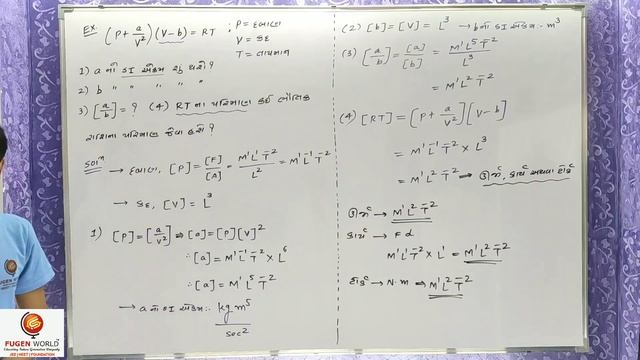 Ex. (P + a/V²)(V - b) = RT ; P = દબાણ
V = કદ
T = તાપમાન
1) a નો SI એકમ શું થશે ?
2) b " " " " "
3) [a/b] = ? (4) RT ના પરિમાણ કઈ ભૌતિક
રાશિના પરિમાણ જેવા હશે ?
Solⁿ → દબાણ, [P] = [F]/[A] = M¹L¹T⁻²/L² = M¹L⁻¹T⁻²
→ કદ, [V] = L³
1) [P] = [a/V²] ⇒ [a] = [P][V]²
∴ [a] = M¹L⁻¹T⁻² × L⁶
∴ [a] = M¹L⁵T⁻²
→ a નો SI એકમ :- kg m⁵/sec²
(2) [b] = [V] = L³ → b નો SI એકમ :- m³
(3) [a/b] = [a]/[b] = M¹L⁵T⁻²/L³
= M¹L²T⁻²
(4) [RT] = [P + a/V²][V - b]
= M¹L⁻¹T⁻² × L³
= M¹L²T⁻² → ઊર્જા, કાર્ય અથવા ટોર્ક
ઊર્જા → M¹L²T⁻²
કાર્ય → Fd
M¹L¹T⁻² × L¹ = M¹L²T⁻²
ટોર્ક → N·m ⇒ M¹L²T⁻²
FUGEN WORLD
JEE | NEET | FOUNDATION